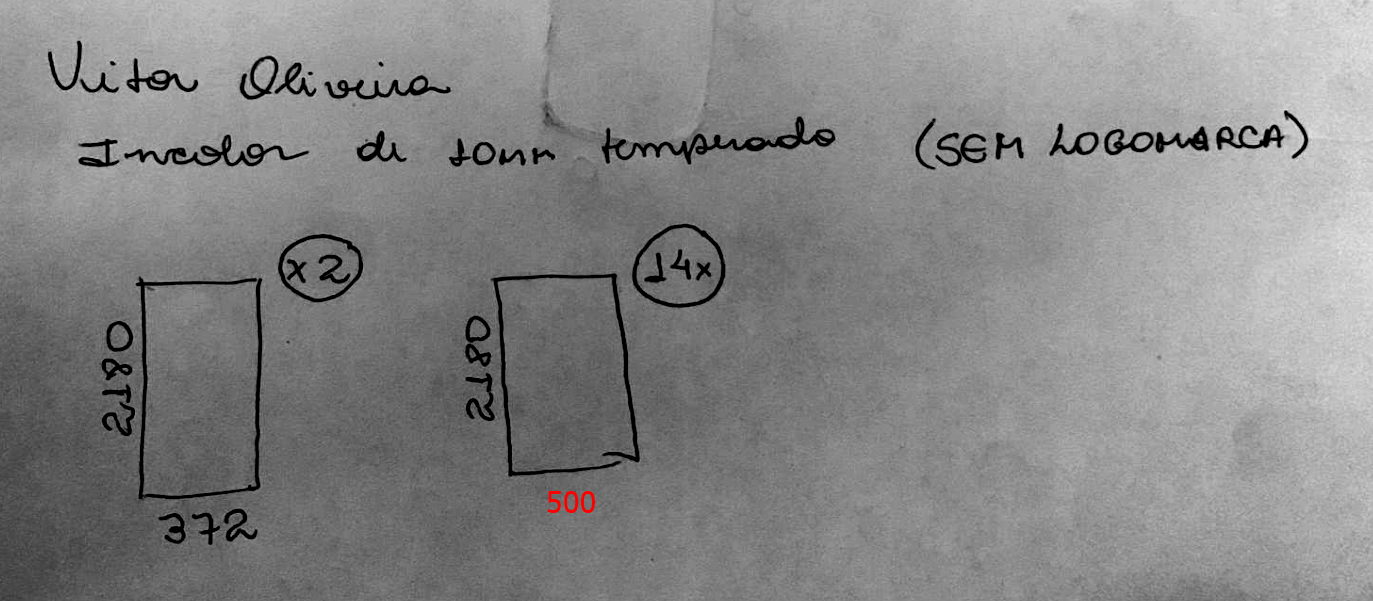 Vitor Oliveira
Incolor de 10mm temperado (SEM LOGOMARCA)
x2
14x
2180
2180
372
500